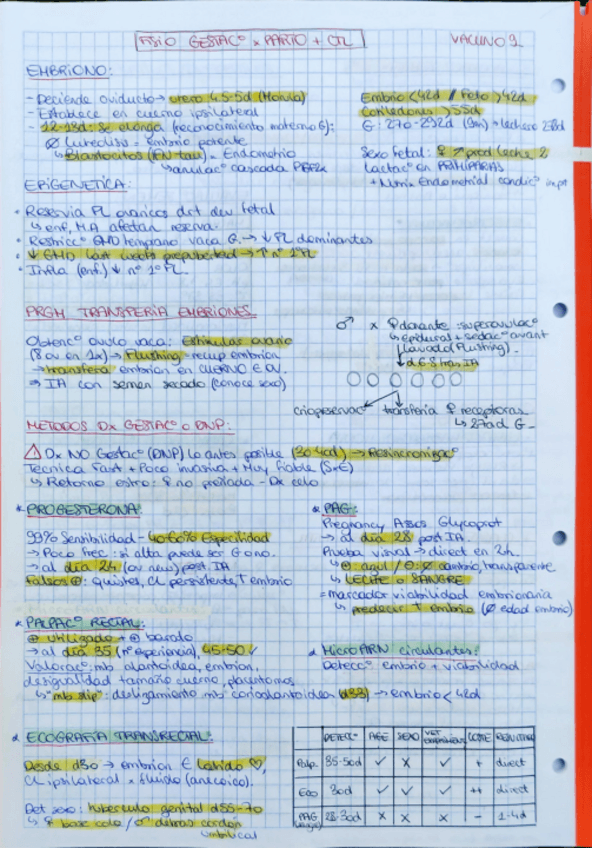 FISIO GESTACº x PARTO + CTL
VACUNO 9
EMBRIONO:
- Desciende oviducto → utero 4.5-5d (Morula)
- Establece en cuerno ipsilateral
- 12-13d: se elonga (reconocimiento materno G):
Ø luteolisis = embrio potente
↳ Blastocitos (IFN tau) = Endometrio
↳ anulacº cascada PGF2α
Embrio <42d / Feto >42d
Cotiledones >55d
G: 270-292d (9m) + lechera 278d
Sexo fetal: ♀ ↗ prod leche 2
lactacº en PRIMIPARAS
EPIGENETICA:
• Reserva FL ovaricos det dev fetal
↳ enf, MA afectan reserva.
• Restriccº GMD temprano vaca G. → ↓ FL dominantes
• ↓ GMD last weeks prepubertad → ↑ nº 1ºFL
• Infla (enf.) ↓ nº 1º FL.
PRGM TRANSFERIA EMBRIONES
Obtencº ovulo vaca: Estimulas ovario
(8 ov en 1x) → Flushing recup embrion
→ transferir embrion en CUERNO E OV.
⇒ IA con semen sexado (conoce sexo)
♂ x ♀ donante: superovulacº
↳ epidural + sedacº avant
Lavado (Flushing).
↓ d6-8 tras IA
criopreservacº transferia ♀ receptoras
↳ 27ad G-
METODOS Dx GESTACº o DNP:
⚠ Dx NO Gestacº (DNP) lo antes posible (30-40d) → Resincronizacº
Tecnica Fast + Poco invasiva + Muy fiable (S+E)
↳ Retorno estro: ♀ no preñada - Dx celo
* PROGESTERONA:
99% Sensibilidad - 40-60% Especifidad
→ Poco frec: si alta puede ser G o no.
→ al dia 24 (ov new) post IA
Falsos ⊕: quistes, CL persistente, † embrio
* PAG:
Pregnancy Assos Glycoprot
→ al dia 28 post IA.
Prueba visual → direct en 2h.
↳ ⊕ azul / ⊖: Ø cambio, transparente
↳ LECHE o SANGRE
= marcador viabilidad embrionaria
↳ predecir † embrio (Ø edad embrio)
* PALPACº RECTAL:
⊕ utilizado + ⊕ barato
→ al dia 35 (nº experiencia), 45-50 ✓
Valoracº: mb alantoidea, embrion,
desigualdad tamaño cuerno, placentomas
↳ "mb slip": desligamiento mb corioalantoidea (d33) → embrio <42d
* MicroARN circulantes:
Deteccº embrio + viabilidad
* ECOGRAFIA TRANSRECTAL:
Desde d30 → embrion E latido ♡,
CL ipsilateral x fluido (anecoico).
Det sexo: tuberculo genital d55-70
↳ ♀ base cola / ♂ detras cordón
umbilical
DETECCº AGE SEXO VET COSTE RESULTADO
Palp. 35-50d ✓ X ✓ + direct
Eco 30d ✓ ✓ ✓ ++ direct
PAG 28-30d X X X - 1-4d